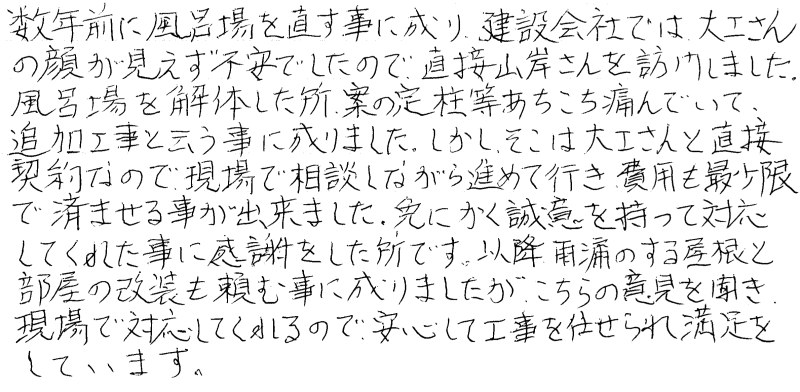 数年前に風呂場を直す事に成り、建設会社では、大工さん
の顔が見えず不安でしたので、直接山岸さんを訪門しました。
風呂場を解体した所、案の定柱等あちこち痛んでいて、
追加工事と云う事に成りました。しかし、そこは大工さんと直接
契約なので、現場で相談しながら進めて行き、費用も最少限
で済ませる事が出来ました。兎にかく誠意を持って対応
してくれた事に感謝をした所です。以降、雨漏のする屋根と
部屋の改装も頼む事に成りましたが、こちらの意見を聞き、
現場で対応してくれるので、安心して工事を任せられ満足を
しています。